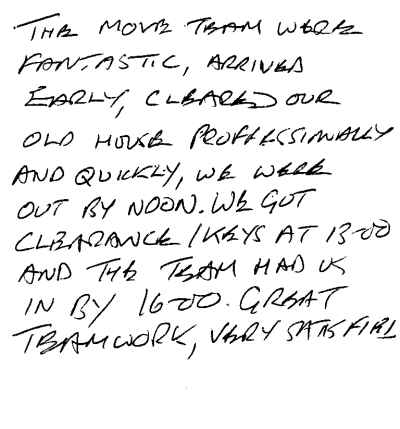 THE MOVE TEAM WERE
FANTASTIC, ARRIVED
EARLY, CLEARED OUR
OLD HOUSE PROFFESSIONALLY
AND QUICKLY, WE WERE
OUT BY NOON. WE GOT
CLEARANCE/KEYS AT 13-00
AND THE TEAM HAD US
IN BY 16-00. GREAT
TEAMWORK, VERY SATISFIED